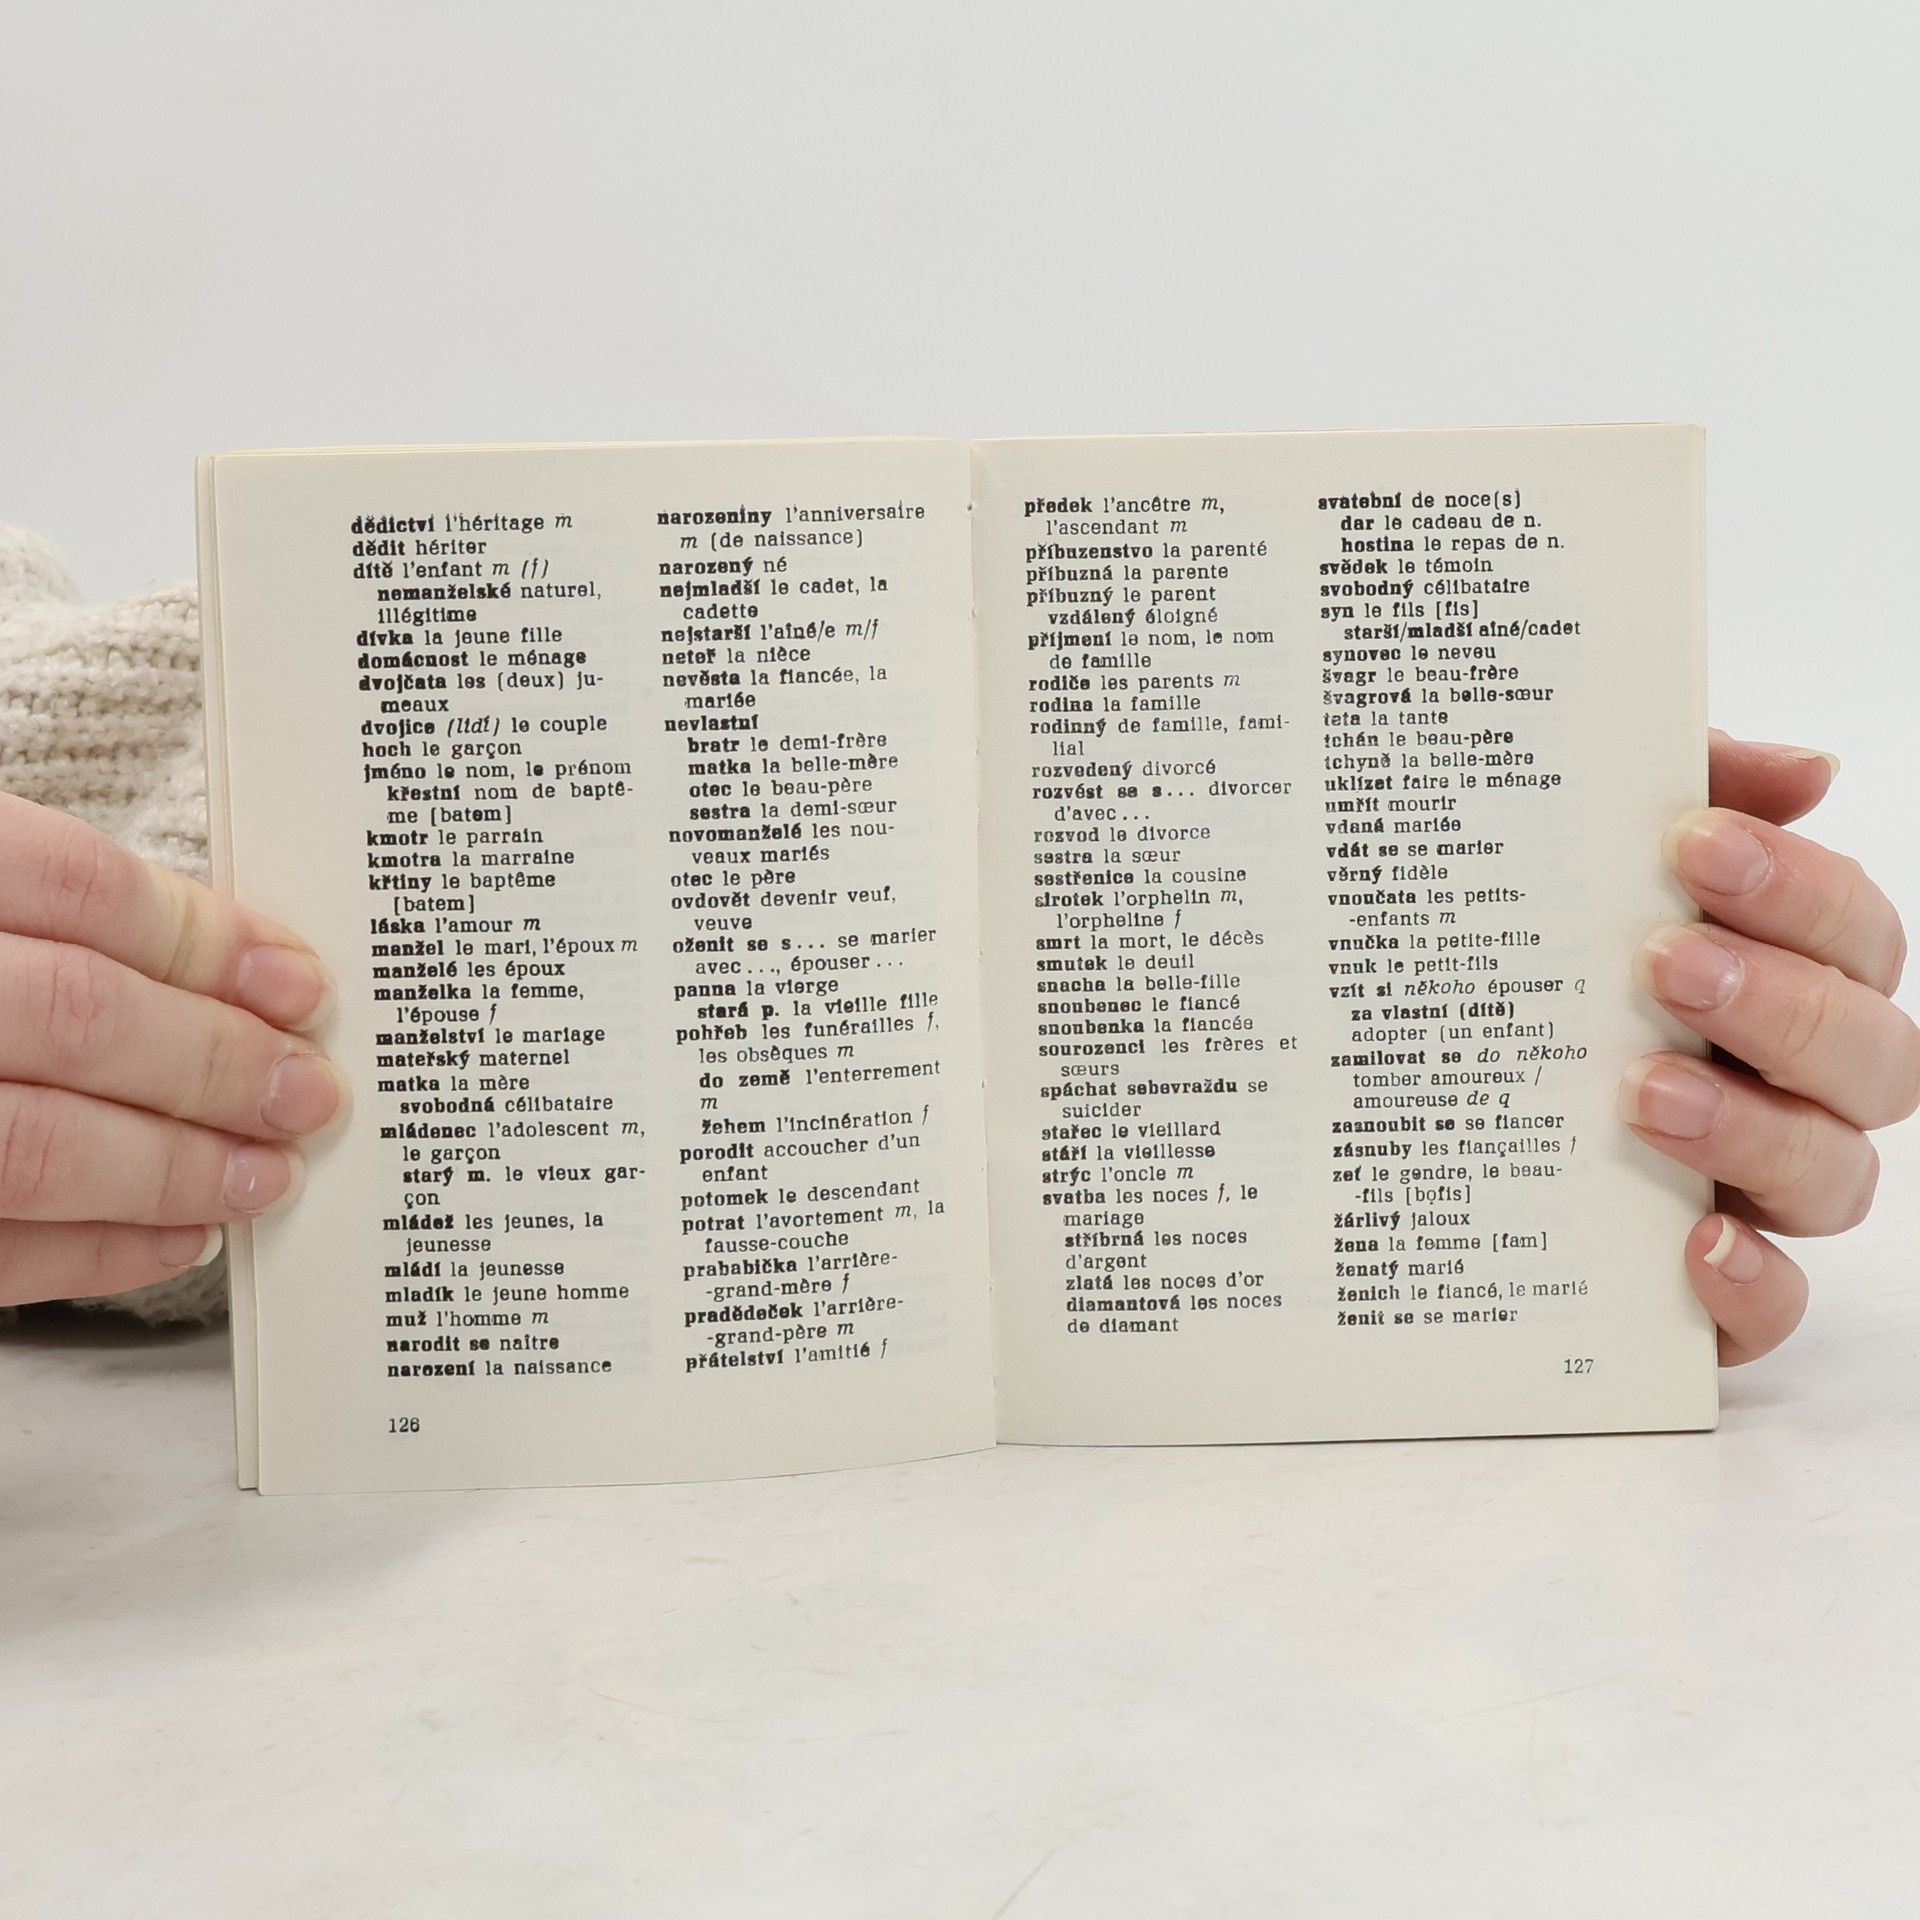 dědictví l'héritage m
dědit hériter
dítě l'enfant m (f)
nemanželské naturel,
illégitime
dívka la jeune fille
domácnost le ménage
dvojčata les (deux) ju-
meaux
dvojice (lidí) le couple
hoch le garçon
jméno le nom, le prénom
křestní nom de baptê-
me [batem]
kmotr le parrain
kmotra la marraine
křtiny le baptême
[batem]
láska l'amour m
manžel le mari, l'époux m
manželé les époux
manželka la femme,
l'épouse f
manželství le mariage
mateřský maternel
matka la mère
svobodná célibataire
mládenec l'adolescent m,
le garçon
starý m. le vieux gar-
çon
mládež les jeunes, la
jeunesse
mládí la jeunesse
mladík le jeune homme
muž l'homme m
narodit se naître
narození la naissance
126
narozeniny l'anniversaire
m (de naissance)
narozený né
nejmladší le cadet, la
cadette
nejstarší l'aîné/e m/f
neteř la nièce
nevěsta la fiancée, la
mariée
nevlastní
bratr le demi-frère
matka la belle-mère
otec le beau-père
sestra la demi-sœur
novomanželé les nou-
veaux mariés
otec le père
ovdovět devenir veuf,
veuve
oženit se s... se marier
avec ..., épouser ...
panna la vierge
stará p. la vieille fille
pohřeb les funérailles f,
les obsèques m
do země l'enterrement
m
žehem l'incinération f
porodit accoucher d'un
enfant
potomek le descendant
potrat l'avortement m, la
fausse-couche
prababička l'arrière-
-grand-mère f
pradědeček l'arrière-
-grand-père m
přátelství l'amitié f
předek l'ancêtre m,
l'ascendant m
příbuzenstvo la parenté
příbuzná la parente
příbuzný le parent
vzdálený éloigné
příjmení le nom, le nom
de famille
rodiče les parents m
rodina la famille
rodinný de famille, fami-
lial
rozvedený divorcé
rozvést se s... divorcer
d'avec ...
rozvod le divorce
sestra la sœur
sestřenice la cousine
sirotek l'orphelin m,
l'orpheline f
smrt la mort, le décès
smutek le deuil
snacha la belle-fille
snoubenec le fiancé
snoubenka la fiancée
sourozenci les frères et
sœurs
spáchat sebevraždu se
suicider
stařec le vieillard
stáří la vieillesse
strýc l'oncle m
svatba les noces f, le
mariage
stříbrná les noces
d'argent
zlatá les noces d'or
diamantová les noces
de diamant
svatební de noce(s)
dar le cadeau de n.
hostina le repas de n.
svědek le témoin
svobodný célibataire
syn le fils [fis]
starší/mladší aîné/cadet
synovec le neveu
švagr le beau-frère
švagrová la belle-sœur
teta la tante
tchán le beau-père
tchyně la belle-mère
uklízet faire le ménage
umřít mourir
vdaná mariée
vdát se se marier
věrný fidèle
vnoučata les petits-
-enfants m
vnučka la petite-fille
vnuk le petit-fils
vzít si někoho épouser q
za vlastní (dítě)
adopter (un enfant)
zamilovat se do někoho
tomber amoureux /
amoureuse de q
zasnoubit se se fiancer
zásnuby les fiançailles f
zeť le gendre, le beau-
-fils [bọfis]
žárlivý jaloux
žena la femme [fam]
ženatý marié
ženich le fiancé, le marié
ženit se se marier
127